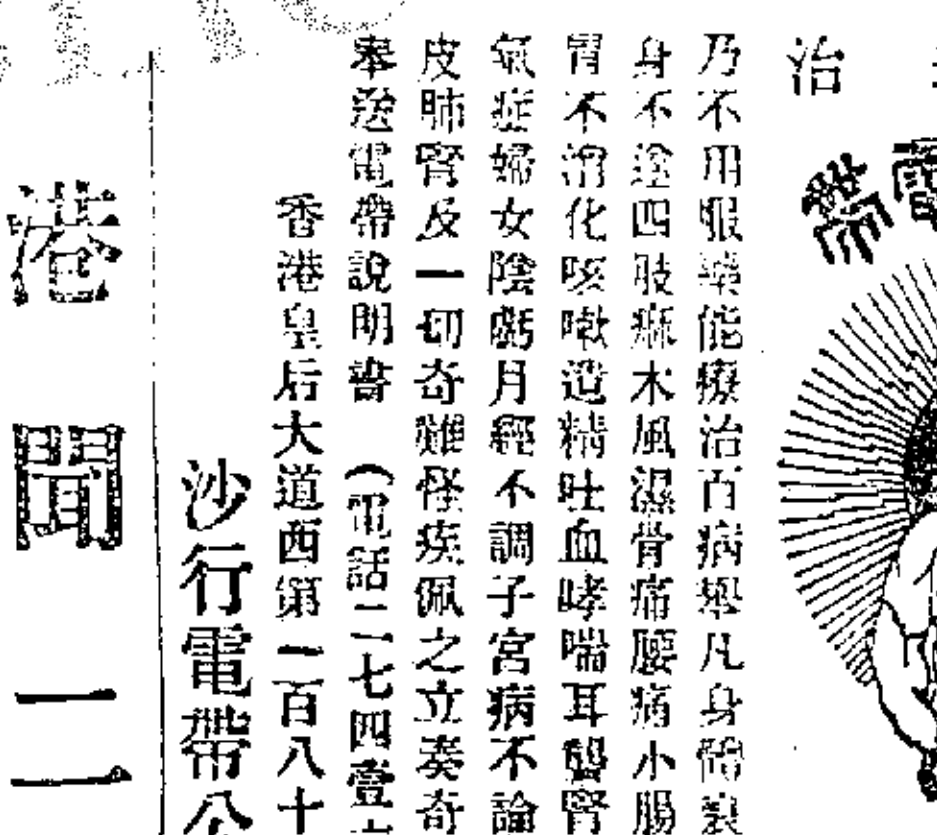 治
電帶
乃不用服藥能療治百病舉凡身體衰
身不遂四肢痲木風濕骨痛腰痛小腸
胃不消化咳嗽遺精吐血哮喘耳聾腎
氣症婦女陰虧月經不調子宮病不論
皮肺腎及一切奇難怪疾佩之立奏奇
奉送電帶說明書 (電話二七四壹
香港皇后大道西第二百八十
沙行電帶公
港聞二